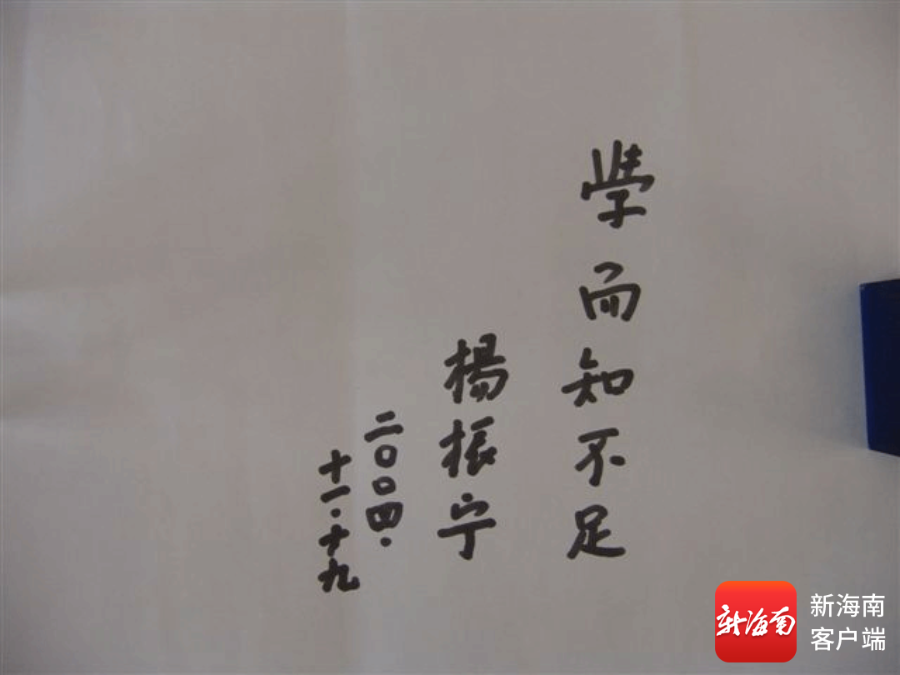 學而知不足
楊振宁
二〇〇四.
十一.十九
新海南
新海南
客户端